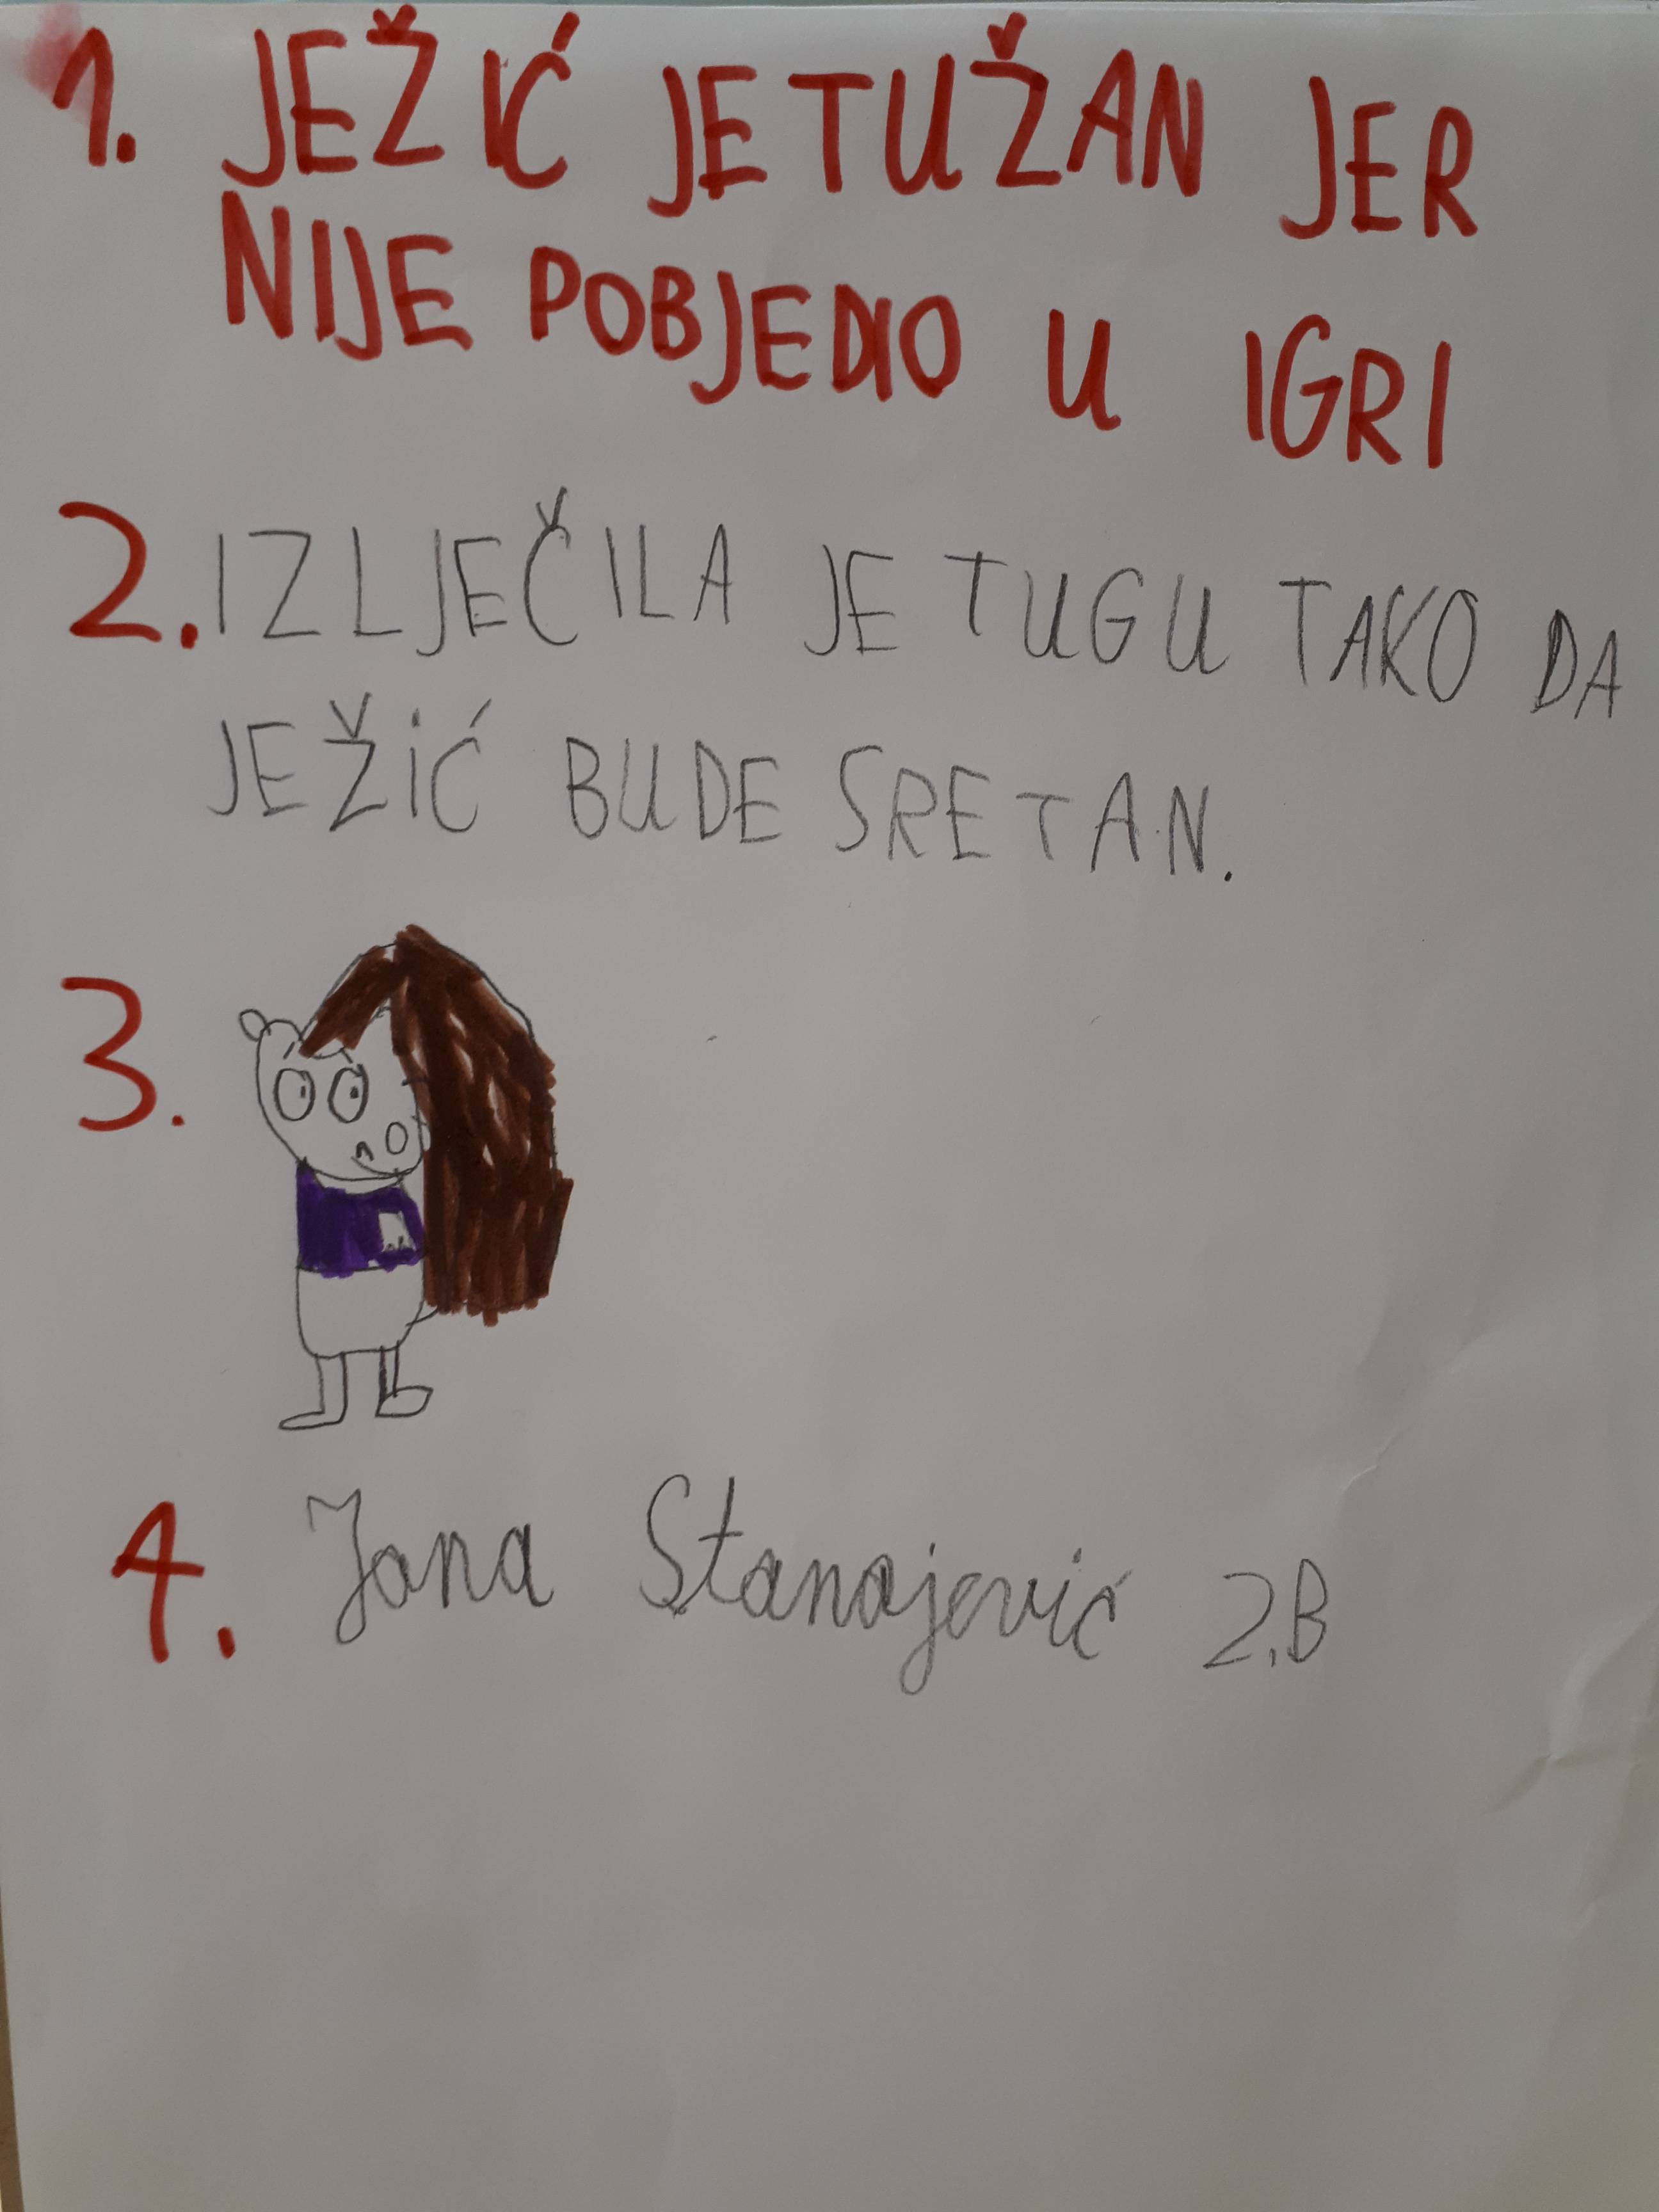 1. JEŽIĆ JE TUŽAN JER
NIJE POBJEDIO U IGRI
2. IZLJEČILA JE TUGU TAKO DA
JEŽIĆ BUDE SRETAN.
3.
4. Jana Stanojević 2.B